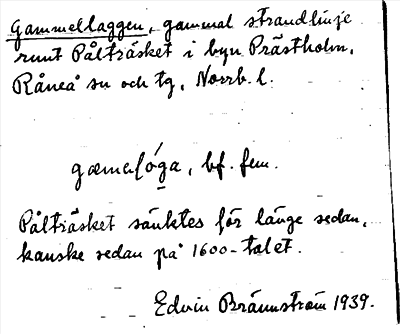 Gammellaggen, gammal strandlinje
runt Pålträsket i byn Prästholm,
Råneå sn och tg, Norrb. l.
bf. fem.
Pålträsket sänktes för länge sedan,
kanske sedan på 1600-talet.
Edvin Brännström 1939.